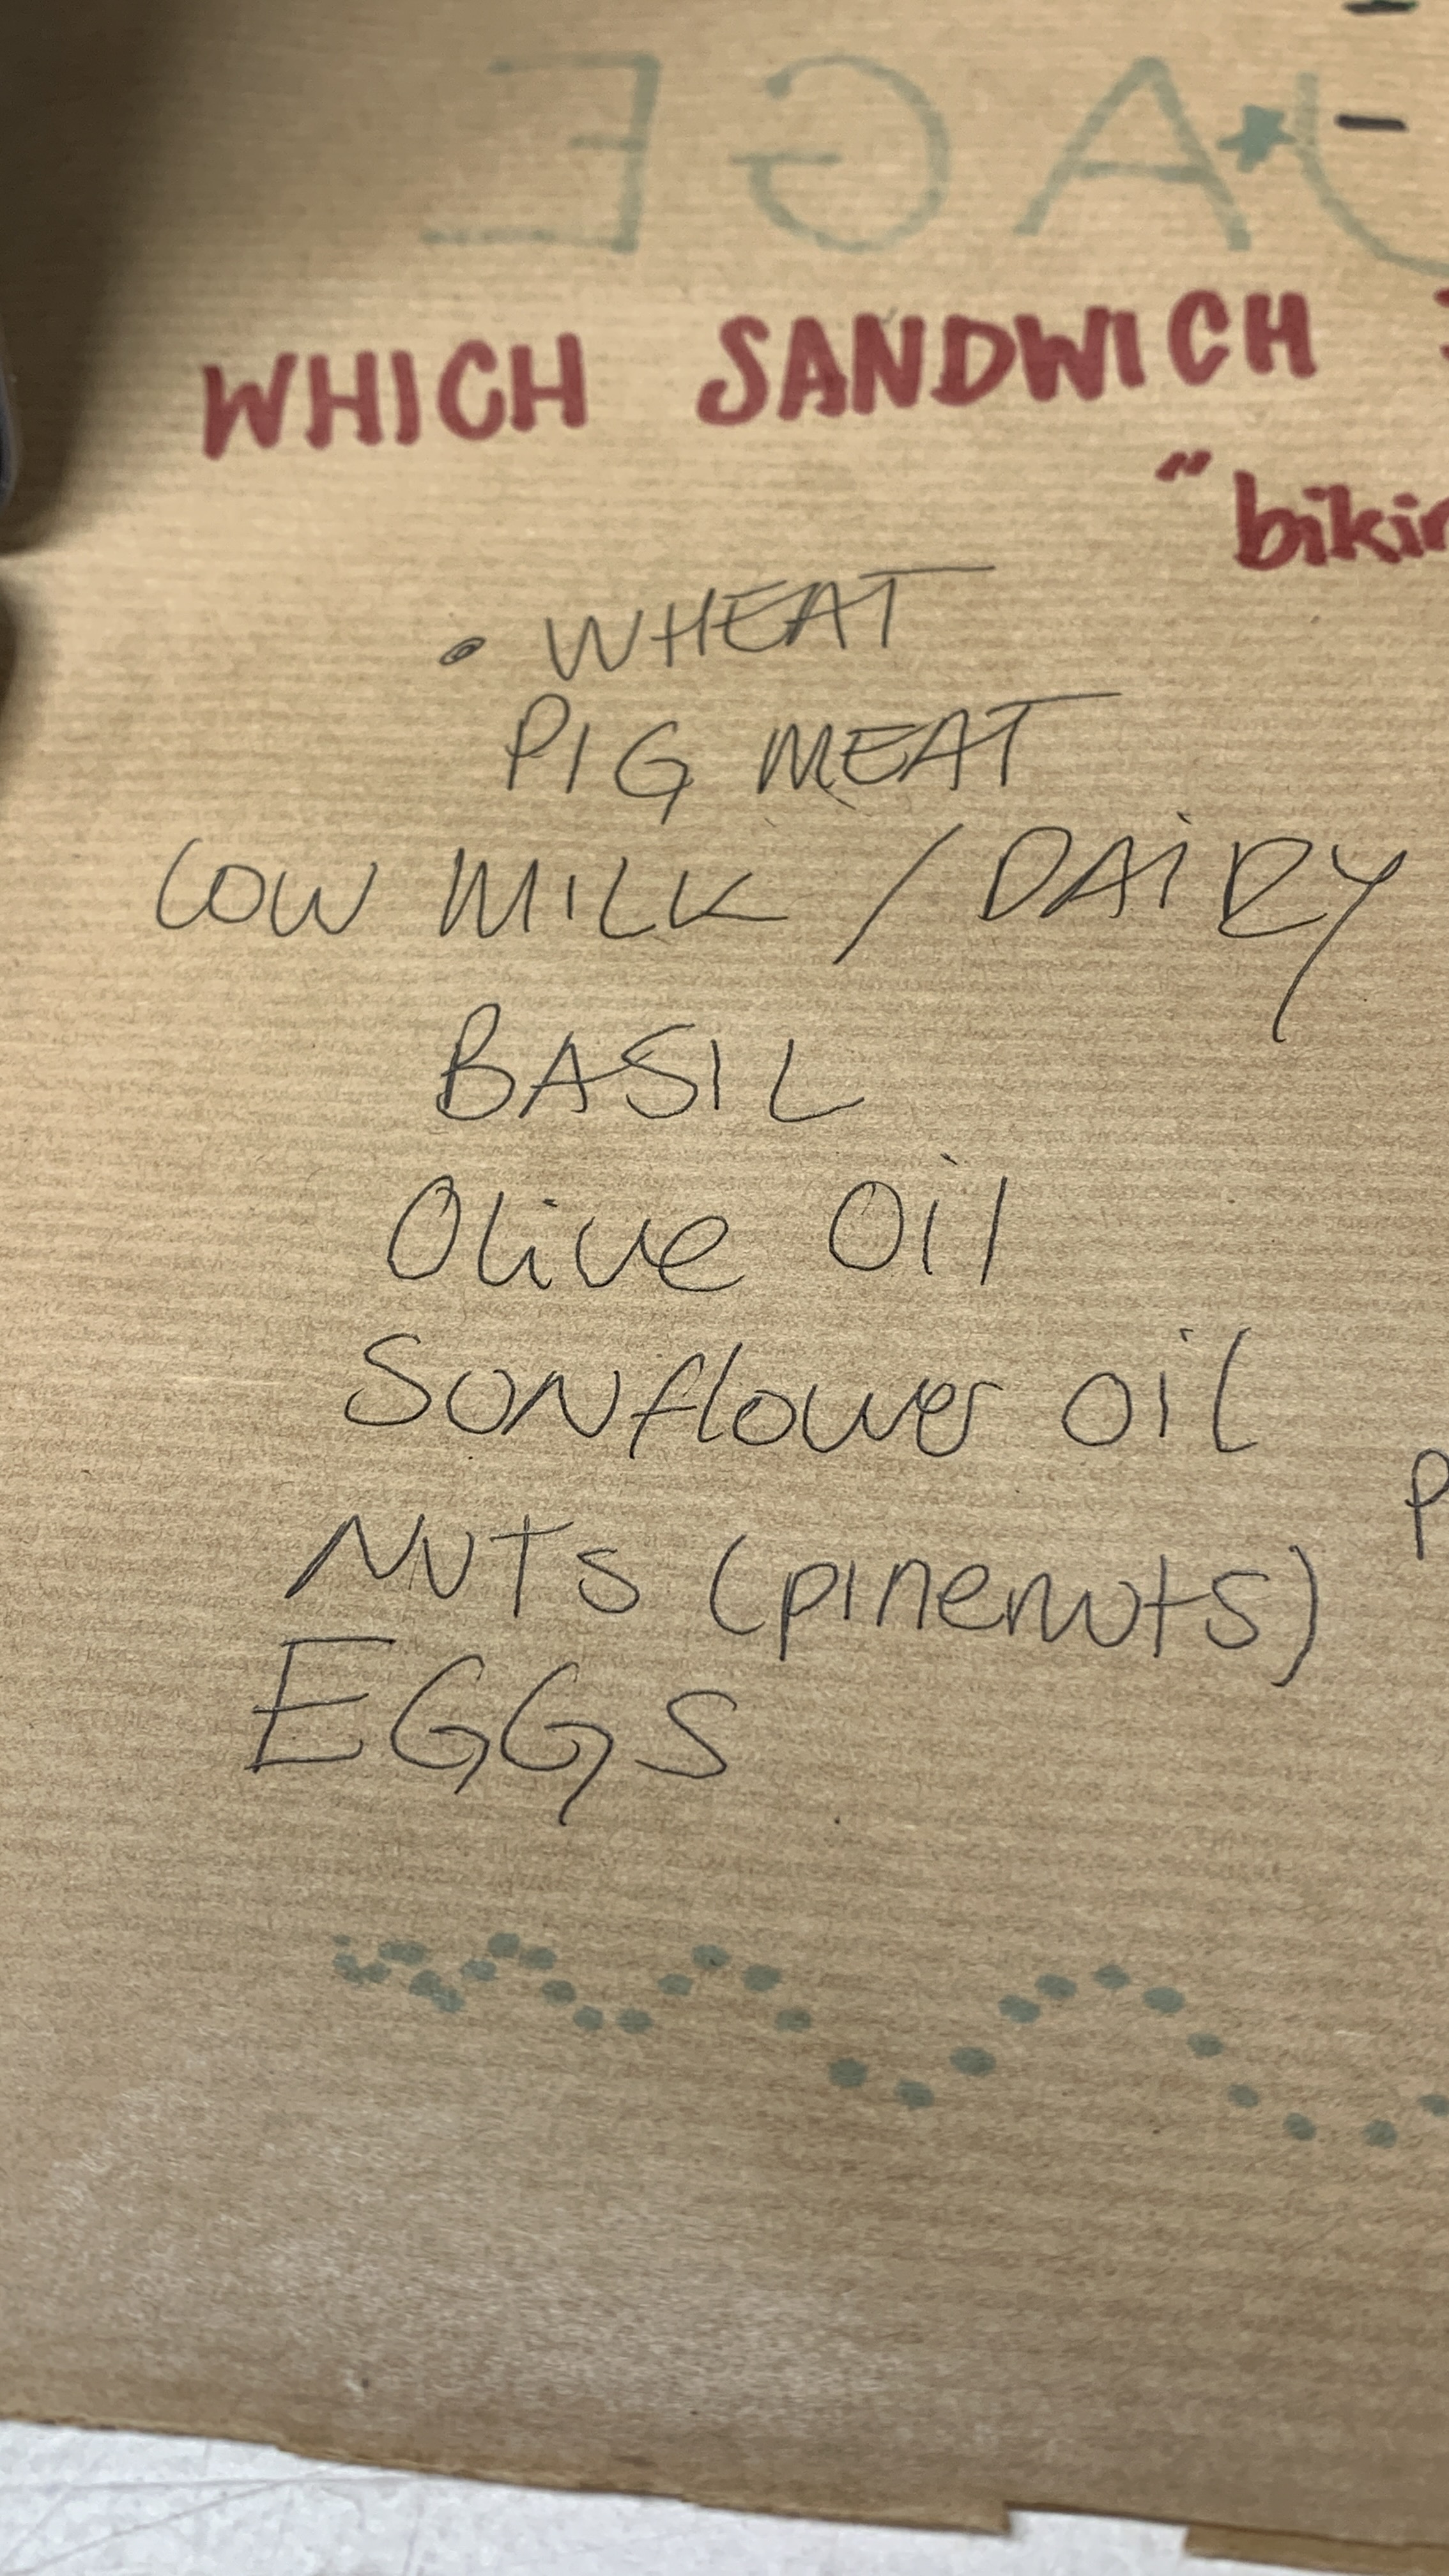 WHICH SANDWICH
"biki
• WHEAT
PIG MEAT
COW MILK / DAiRY
BASIL
Olive Oil
Sunflower oil
NUTS (pinenuts)
EGGS